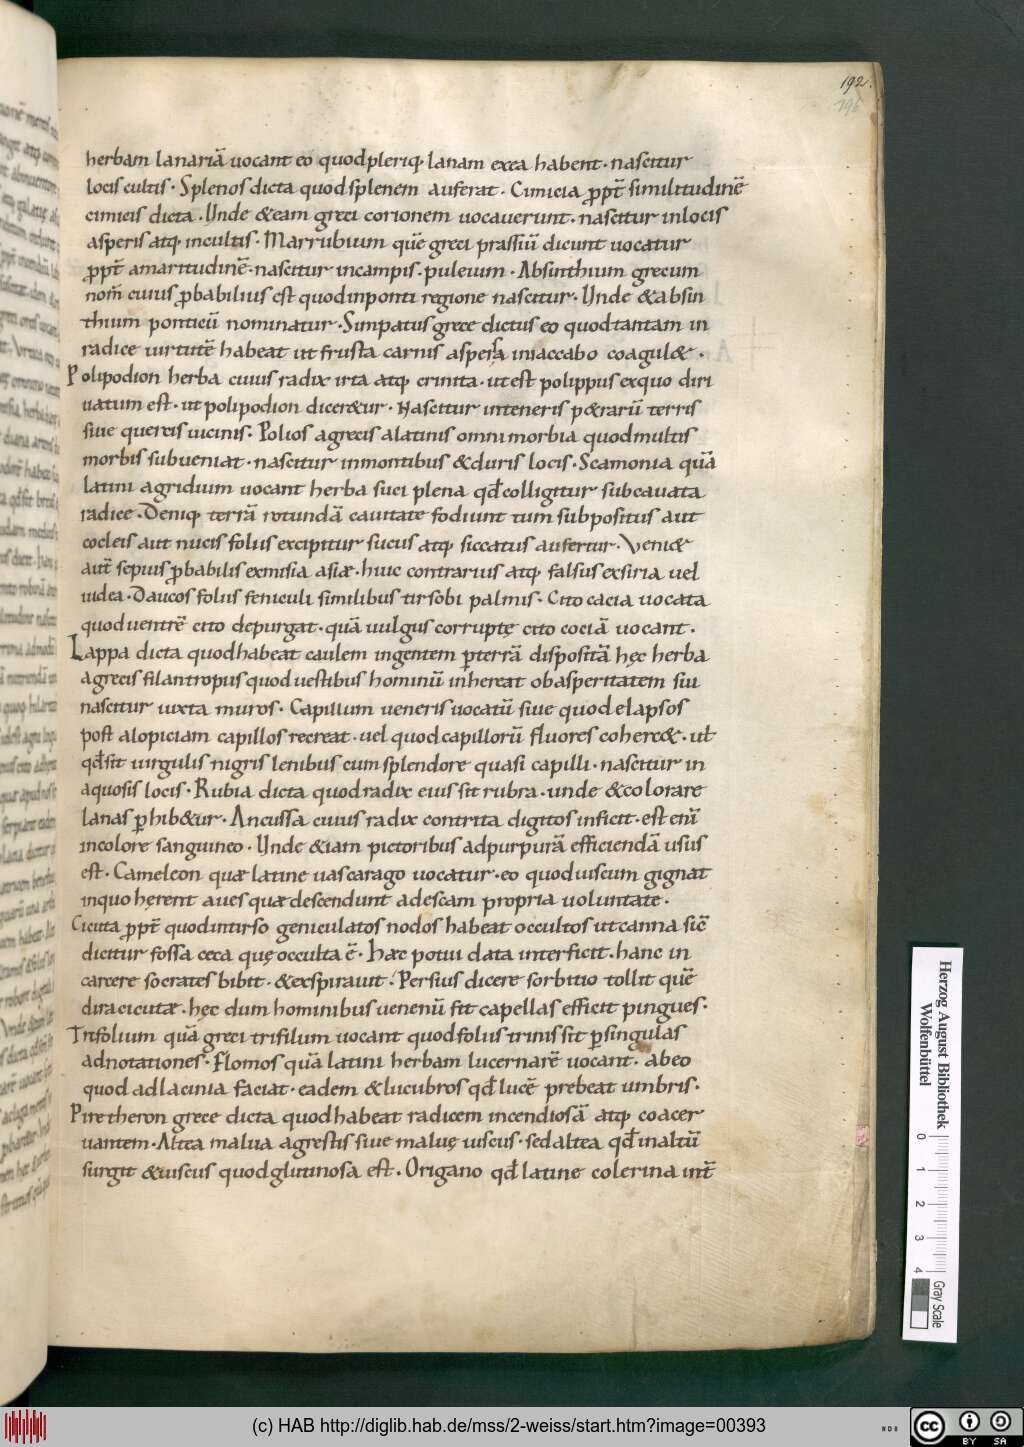 192.
196
herbam lanariā uocant eo quod pleriq; lanam ex ea habent · nascitur
locis cultis · Splenos dicta quod splenem auferat · Cimicia ꝓpt̄ similitudinē
cimicis dicta · Unde & eam greci corionem uocauerunt · nascitur in locis
asperis atq; incultis · Marrubium quē greci prassiū dicunt uocatur
ꝓpt̄ amaritudinē · nascitur in campis · puleium · Absinthium grecum
nom̄ cuius ꝓbabilius est quod in ponti regione nascitur · Unde & absin
thium ponticū nominatur · Simpatus grece dictus eo quod tantam in
radice uirtutē habeat ut frusta carnis aspersa in caccabo coagul& ·
Polipodion herba cuius radix irta atq; crinita · ut est polippus ex quo diri
uatum est · ut polipodion dicer&ur · Nascitur in teneris p&rarū terris
siue quercis uicinis · Polios a grecis a latinis omnimorbia quod multis
morbis subueniat · nascitur in montibus & duris locis · Scamonia quā
latini agridium uocant herba suci plena qđ colligitur subcauata
radice · Deniq; terrā rotundā cauitate fodiunt tum subpositus aut
cocleis aut nucis folus excipitur sucus atq; siccatus aufertur · Veni&
aut̄ sepuis ꝓbabilis ex misia asiæ · huic contrarius atq; falsus ex siria uel
iudea · Daucos folus feniculi similibus tirso bi palmis · Cito cacia uocata
quod uentrē cito depurgat · quā uulgus corruptę cito cociā uocant ·
Lappa dicta quod habeat caulem ingentem ꝑ terrā dispositā hęc herba
a grecis filantropus quod uestibus hominū inhereat ob asperitatem sui
nascitur iuxta muros · Capillum ueneris uocatū siue quod elapsos
post alopiciam capillos recreat · uel quod capillorū fluores coherc& · uł
qđ sit uirgulis nigris lenibus cum splendore quasi capilli · nascitur in
aquosis locis · Rubia dicta quod radix eius sit rubra · unde & colorare
lanas ꝑhib&ur · Ancussa cuius radix contrita digitos inficit · est eni͞
in colore sanguineo · Unde &iam pictoribus ad purpurā efficiendā usus
est · Cameleon quæ latine uascarago uocatur · eo quod uiscum gignat
in quo hęrent aues quæ descendunt ad escam propria uoluntate ·
Cicuta ꝓpt̄ quod in tirso geniculatos nodos habeat occultos ut canna sic̄
dicitur fossa ceca quę occulta ē · Hæc potui data interficit · hanc in
carcere socrates bibit · & exspirauit · Persius dicere sorbitio tollit quē
dira cicutæ · hęc dum hominibus uenenū fit capellas efficit pingues ·
Trifolium quā greci trifilum uocant quod folus trinis sit ꝑ singulas
adnotationes · Flomos quā latini herbam lucernarē uocant · ab eo
quod ad lacinia faciat · eadem & lucubros qđ lucē prebeat umbris ·
Piretheron grece dicta quod habeat radicem incendiosā atq; coacer
uantem · Altea malua agrestis siue maluę uiscus · sed altea qđ in altū
surgit & uiscus quod glutinosa est · Origano qđ latine colerina int̄
Herzog August Bibliothek
Wolfenbüttel
0 1 2 3 4
Gray Scale
(c) HAB http://diglib.hab.de/mss/2-weiss/start.htm?image=00393
cc BY SA